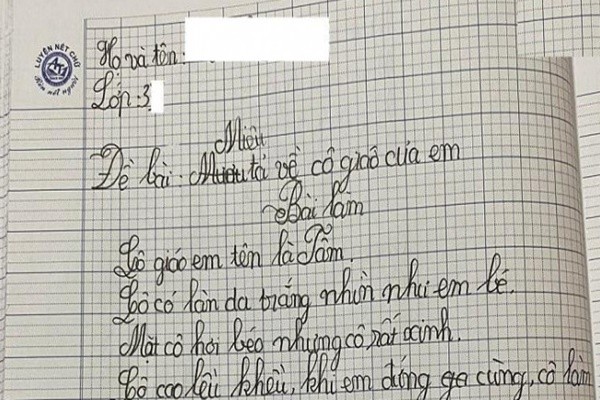 LUYỆN NÉT CHỮ
Rèn nết người
Họ và tên:
Lớp: 3
Miêu
Đề bài: tả về cô giáo của em
Bài làm
Cô giáo em tên là Tâm.
Cô có làn da trắng nhìn như em bé.
Mặt cô hơi béo nhưng cô rất xinh.
Cô cao lêu khêu, khi em đóng ga cùng, cô làm